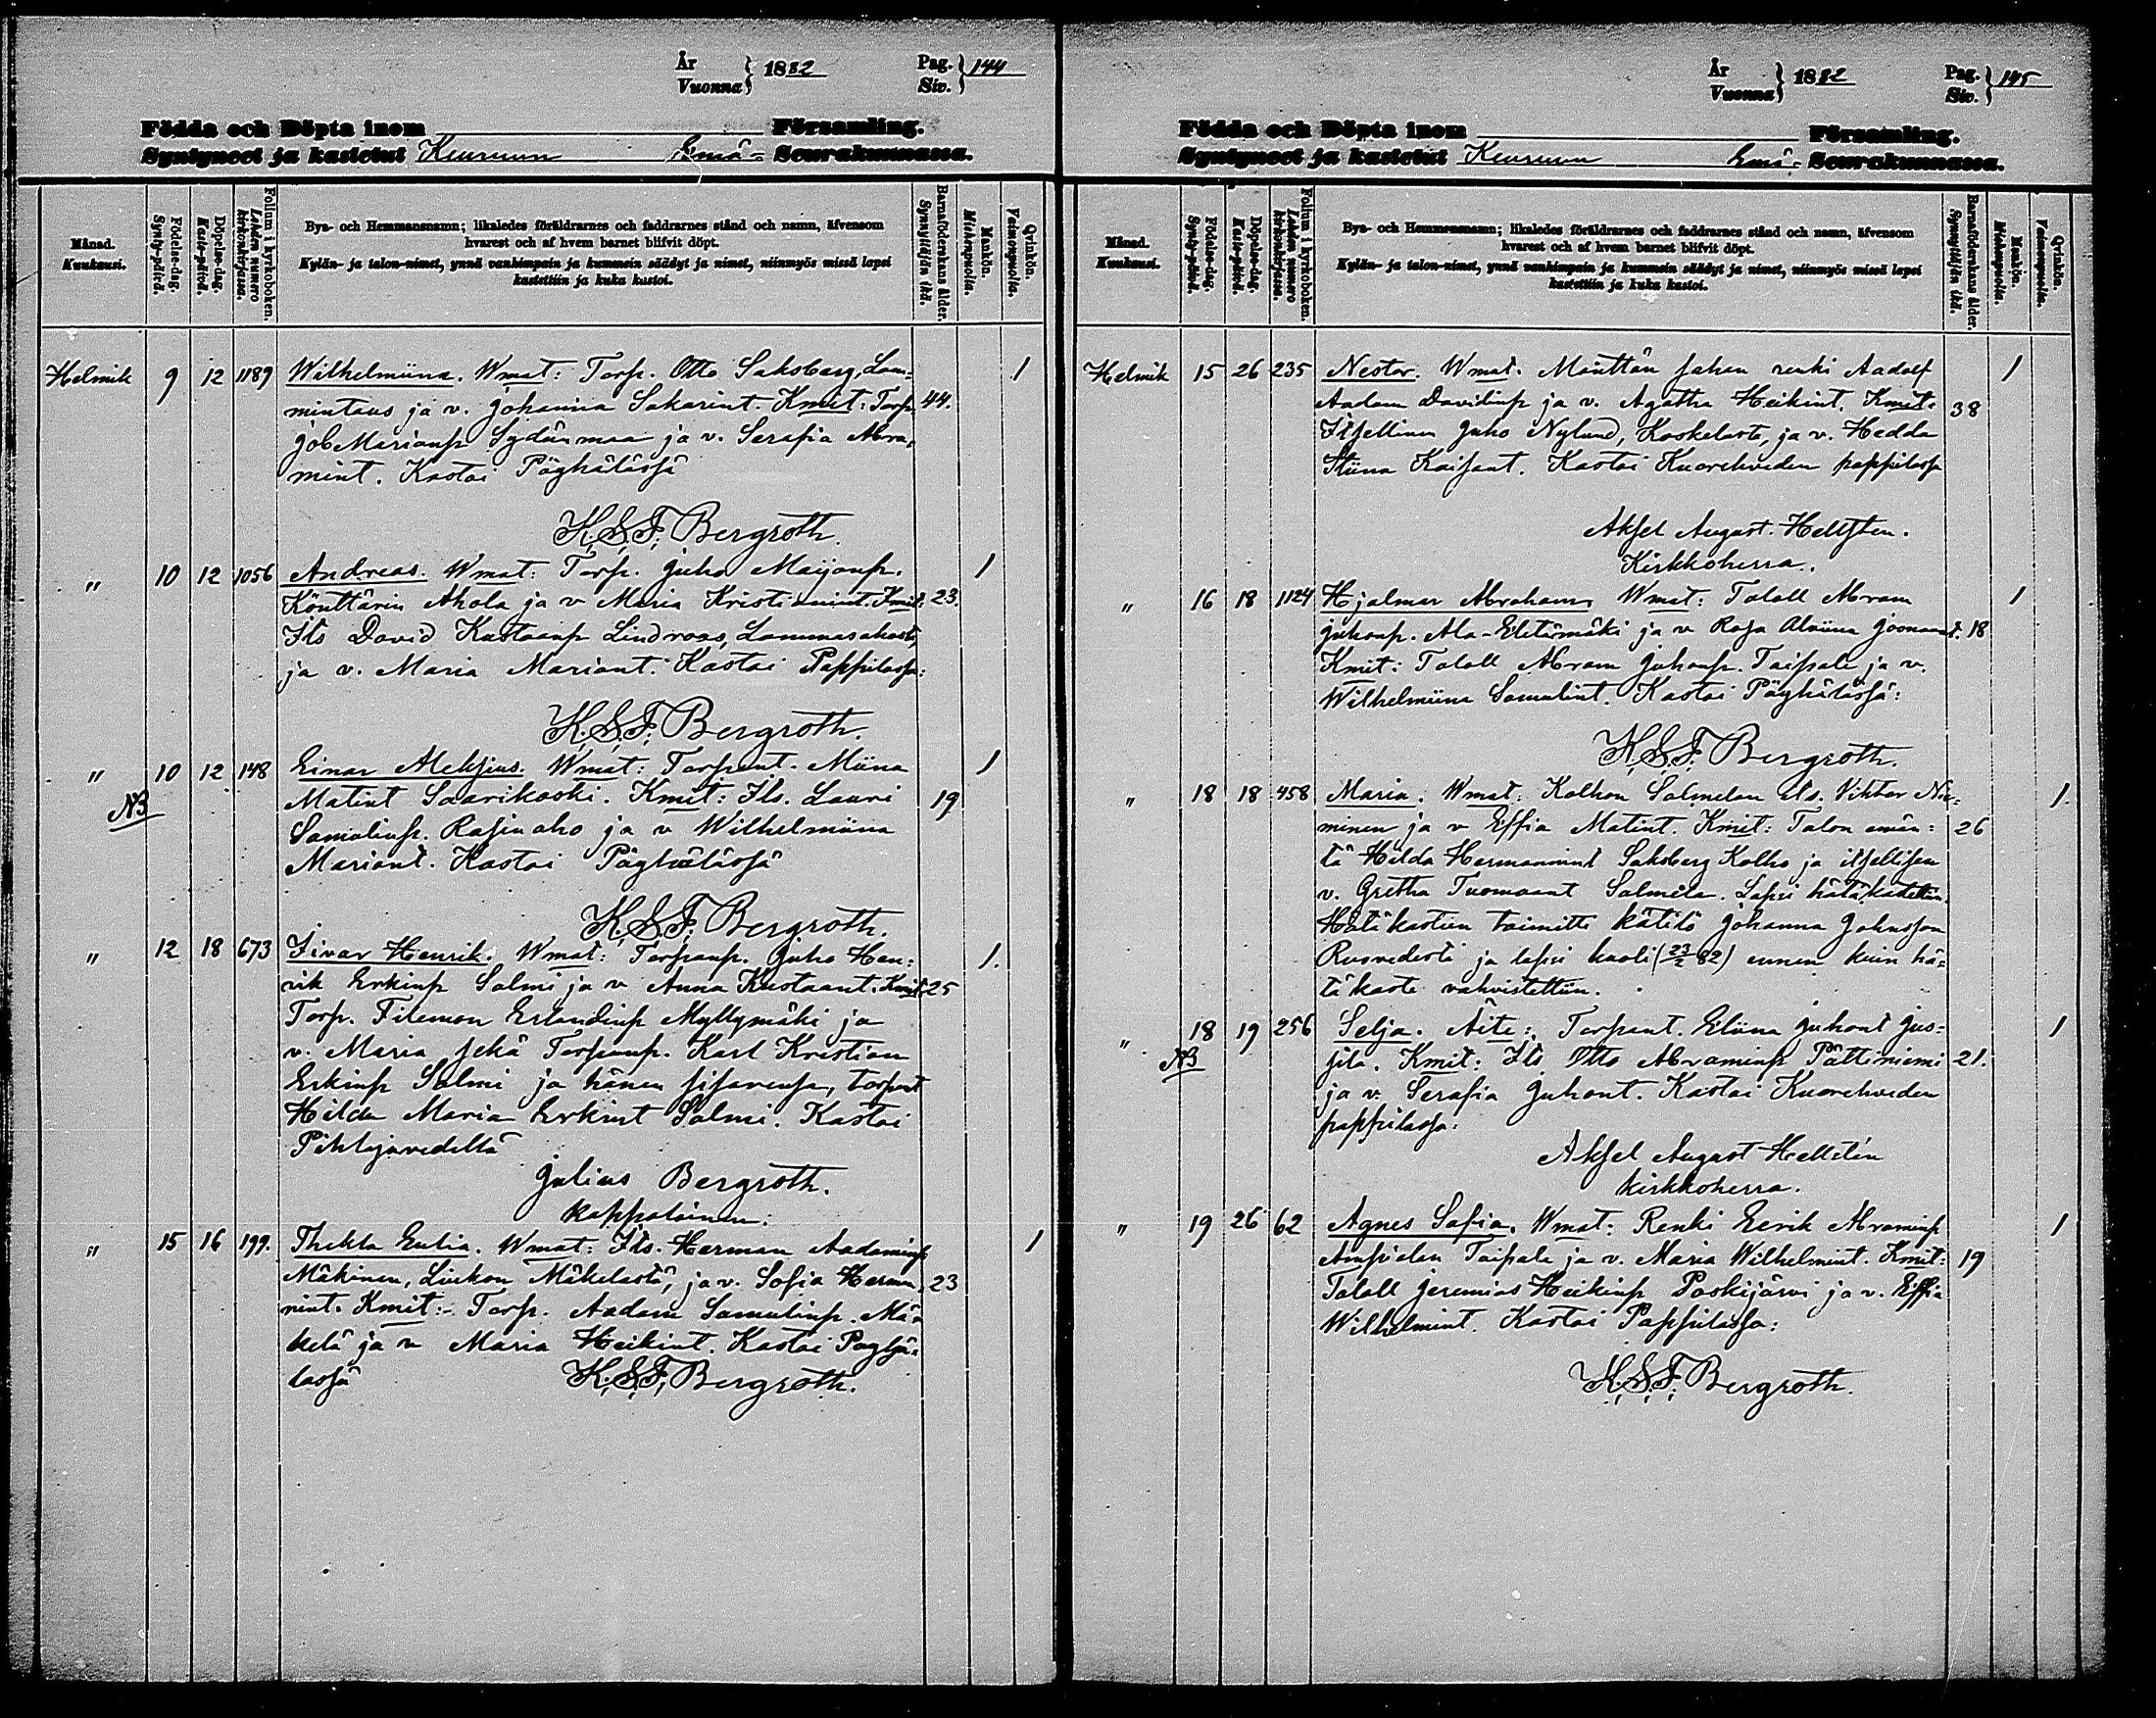 År
Vuonna } 1882
Pag.
Siv. } 144
Födda och Döpta inom Församling.
Syntyneet ja kastetut Keuruun Emä- Seurakunnassa.
Månad.
Kuukausi.
Födelse-dag.
Synty-päivä.
Döpelse-dag.
Kaste-päivä.
Folium i kyrkoboken.
Lehden numero kirkonkirjassa.
Bya- och Hemmansnamn; likaledes föräldrarnes och faddrarnes stånd och namn, äfvensom
hvarest och af hvem barnet blifvit döpt.
Kylän- ja talon-nimet, ynnä vanhimpain ja kummein säädyt ja nimet, niinmyös missä lapsi
kastettiin ja kuka kastoi.
Barnaföderskans ålder.
Synnyttäjän ikä.
Mankön.
Miehenpuolia.
Qvinkön.
Vaimonpuolia.
Helmik 9 12 1189 Wilhelmiina. Wmat: Torp. Otto Saksberg, Lam- 1
mintaus ja v. Johanna Sakarint. Kmit: Torp. 44.
Job Marianp. Sydänmaa ja v. Serafia Abra-
mint. Kastoi Pöyhälässä
K. S. F. Bergroth.
" 10 12 1056 Andreas. Wmat: Torp. Juho Maijanp. 1
Könttärin Ahola ja v Maria Kristianint. Kmit: 23.
Its David Kustaanp Lindroos, Lammasahosta,
ja v. Maria Mariant. Kastoi Pappilassa:
K. S. F. Bergroth.
" 10 12 148 Einar Aleksius. Wmat: Torpant. Miina 1
NB Matint Saarikoski. Kmit: Its. Lauri 19
Samulinp. Rasinaho ja v Wilhelmiina
Mariant. Kastoi Pöyhälässä
K. S. F. Bergroth.
" 12 18 673 Iivar Henrik. Wmat: Torpanp. Juho Hen- 1.
rik Erkinp Salmi ja v Anna Kustaant. Kmit: 25
Torp. Filemon Erlandinp Myllymäki ja
v. Maria sekä Torpanp. Karl Kristian
Erkinp Salmi ja hänen sisarensa, torpant
Hilda Maria Erkint Salmi. Kastoi
Pihlajavedellä
Julius Bergroth.
kappalainen.
" 15 16 199. Thekla Eulia. Wmat: Its. Herman Aadaminp 1
Mäkinen, Liukon Mäkelästä, ja v. Sofia Herma- 23
nint. Kmit: Torp. Aadam Samulinp. Mä-
kelä ja v Maria Heikint. Kastoi Pöyhä-
lässä K. S. F. Bergroth.
År
Vuonna } 1882
Pag.
Siv. } 145
Födda och Döpta inom Församling.
Syntyneet ja kastetut Keuruun Emä- Seurakunnassa.
Månad.
Kuukausi.
Födelse-dag.
Synty-päivä.
Döpelse-dag.
Kaste-päivä.
Folium i kyrkoboken.
Lehden numero kirkonkirjassa.
Bya- och Hemmansnamn; likaledes föräldrarnes och faddrarnes stånd och namn, äfvensom
hvarest och af hvem barnet blifvit döpt.
Kylän- ja talon-nimet, ynnä vanhimpain ja kummein säädyt ja nimet, niinmyös missä lapsi
kastettiin ja kuka kastoi.
Barnaföderskans ålder.
Synnyttäjän ikä.
Mankön.
Miehenpuolia.
Qvinkön.
Vaimonpuolia.
Helmik 15 26 235 Nestor. Wmat. Mänttän sahan renki Aadolf 1
Aadam Davidinp ja v. Agatha Heikint. Kmit: 38
Itsellinen Juho Nylund, Koskelasta, ja v. Hedda
Stiina Kaisant. Kastoi Kuoreheveden pappilassa
Aksel August Hellsten.
Kirkkoherra.
" 16 18 1124 Hjalmar Abraham. Wmat: Taloll Abram 1
Juhanp. Ala-Eletärmäki ja v Rosa Alviina Joonaant. 18
Kmit: Taloll Abram Juhanp. Taipale ja v.
Wilhelmiina Samulint. Kastoi Pöyhälässä:
K. S. F. Bergroth.
" 18 18 458 Maria. Wmat: Kolhon Salmelan its. Viktor Nie- 1.
minen ja v Effia Matint. Kmit: Talon emän- 26
tä Hilda Hermannint Saksberg Kolho ja itsellisen
v. Gretha Tuomaant Salmela. Lapsi hätäkastettiin.
Hätäkasteen toimitti kätilö Johanna Johnsson
Ruovedestä ja lapsi kuoli (23/2 82) ennen kuin hä-
täkaste vahvistettiin.
" 18 19 256 Selja. Äite: Torpant. Eliina Juhont Jus- 1
NB sila. Kmit: Its Otto Abraminp Pättiniemi 21.
ja v. Serafia Juhont. Kastoi Kuoreheveden
pappilassa:
Aksel August Hellstén
kirkkoherra.
" 19 26 62 Agnes Sofia. Wmat: Renki Eerik Abraminp 1
Ampialan Taipale ja v. Maria Wilhelmint. Kmit: 19
Taloll Jeremias Heikinp Poskijärvi ja v. Effia
Wilhelmint. Kastoi Pappilassa:
K. S. F. Bergroth.